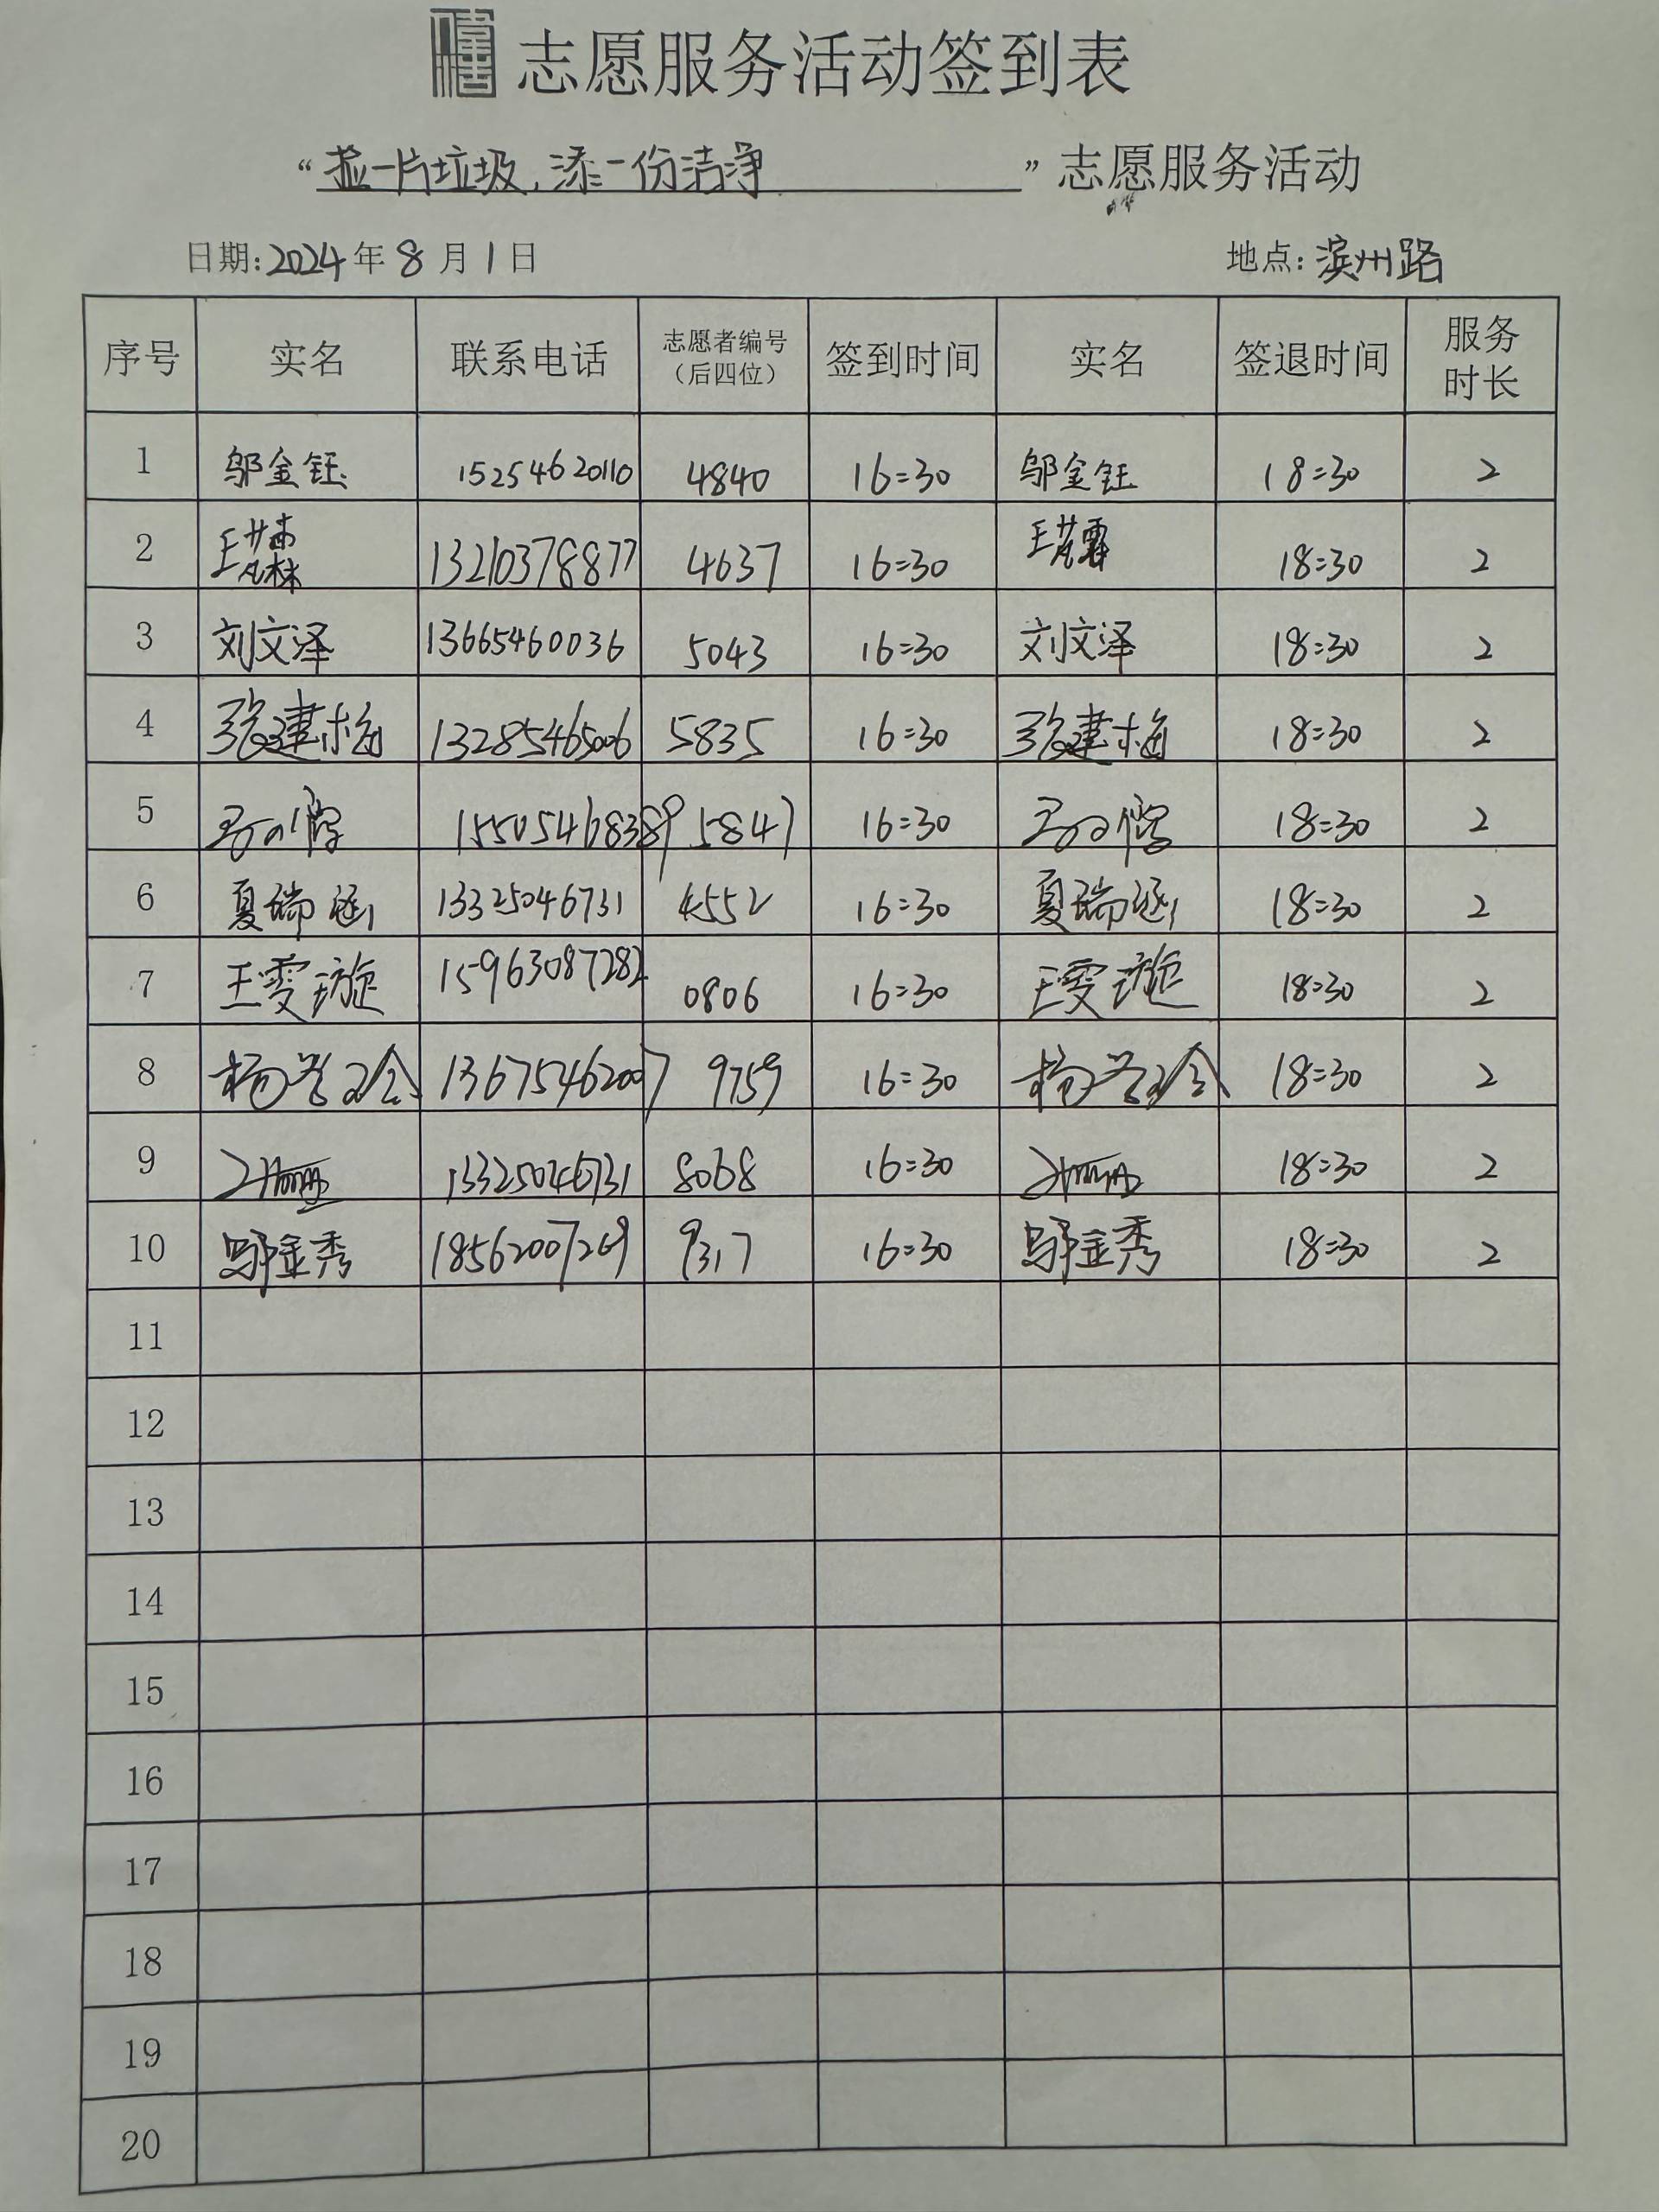 志愿服务活动签到表
“捡一片垃圾,添一份洁净”志愿服务活动
日期:2024年8月1日 地点:滨州路
序号 实名 联系电话 志愿者编号(后四位) 签到时间 实名 签退时间 服务时长
1 邬金钰 15254620110 4840 16:30 邬金钰 18:30 2
2 王梵霖 13210378877 4637 16:30 王梵霖 18:30 2
3 刘文泽 13665460036 5043 16:30 刘文泽 18:30 2
4 张建梅 13285465006 5835 16:30 张建梅 18:30 2
5 15505468389 5847 16:30 18:30 2
6 夏瑞涵 13325046731 4552 16:30 夏瑞涵 18:30 2
7 王雯璇 15963087282 0806 16:30 王雯璇 18:30 2
8 13675462007 9759 16:30 18:30 2
9 13325046731 8068 16:30 18:30 2
10 邬金秀 18562007269 9317 16:30 邬金秀 18:30 2
11
12
13
14
15
16
17
18
19
20